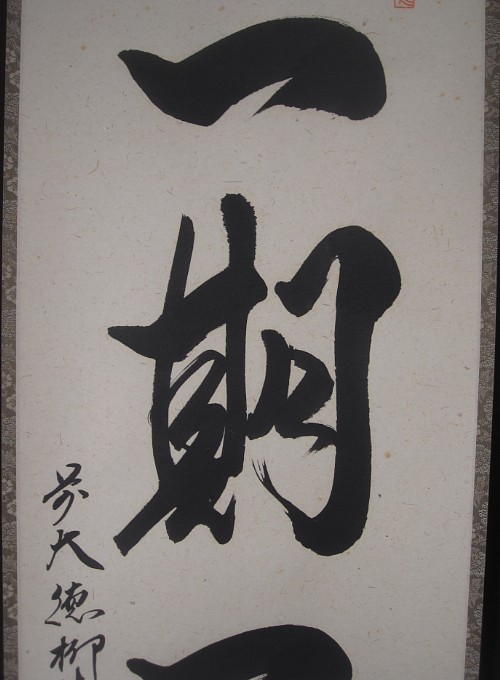 一期
前大徳柳